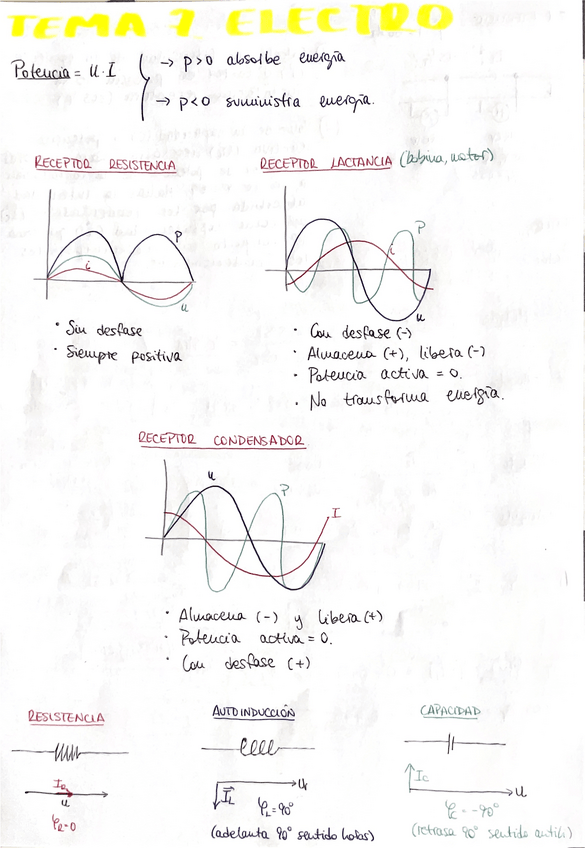 TEMA 7 ELECTRO
Potencia = U·I
→ P>0 absorbe energía
→ P<0 suministra energía.
RECEPTOR RESISTENCIA
P
i
u
· Sin desfase
· Siempre positiva
RECEPTOR LACTANCIA (bobina, motor)
P
i
u
· Con desfase (-)
· Almacena (+), libera (-)
· Potencia activa = 0.
· No transforma energía.
RECEPTOR CONDENSADOR
u
P
I
· Almacena (-) y libera (+)
· Potencia activa = 0.
· Con desfase (+)
RESISTENCIA
I_R
u
φ_R=0
AUTOINDUCCIÓN
U
I_L
φ_L=90°
(adelanta 90° sentido horas)
CAPACIDAD
I_C
U
φ_C=-90°
(retrasa 90° sentido antih)